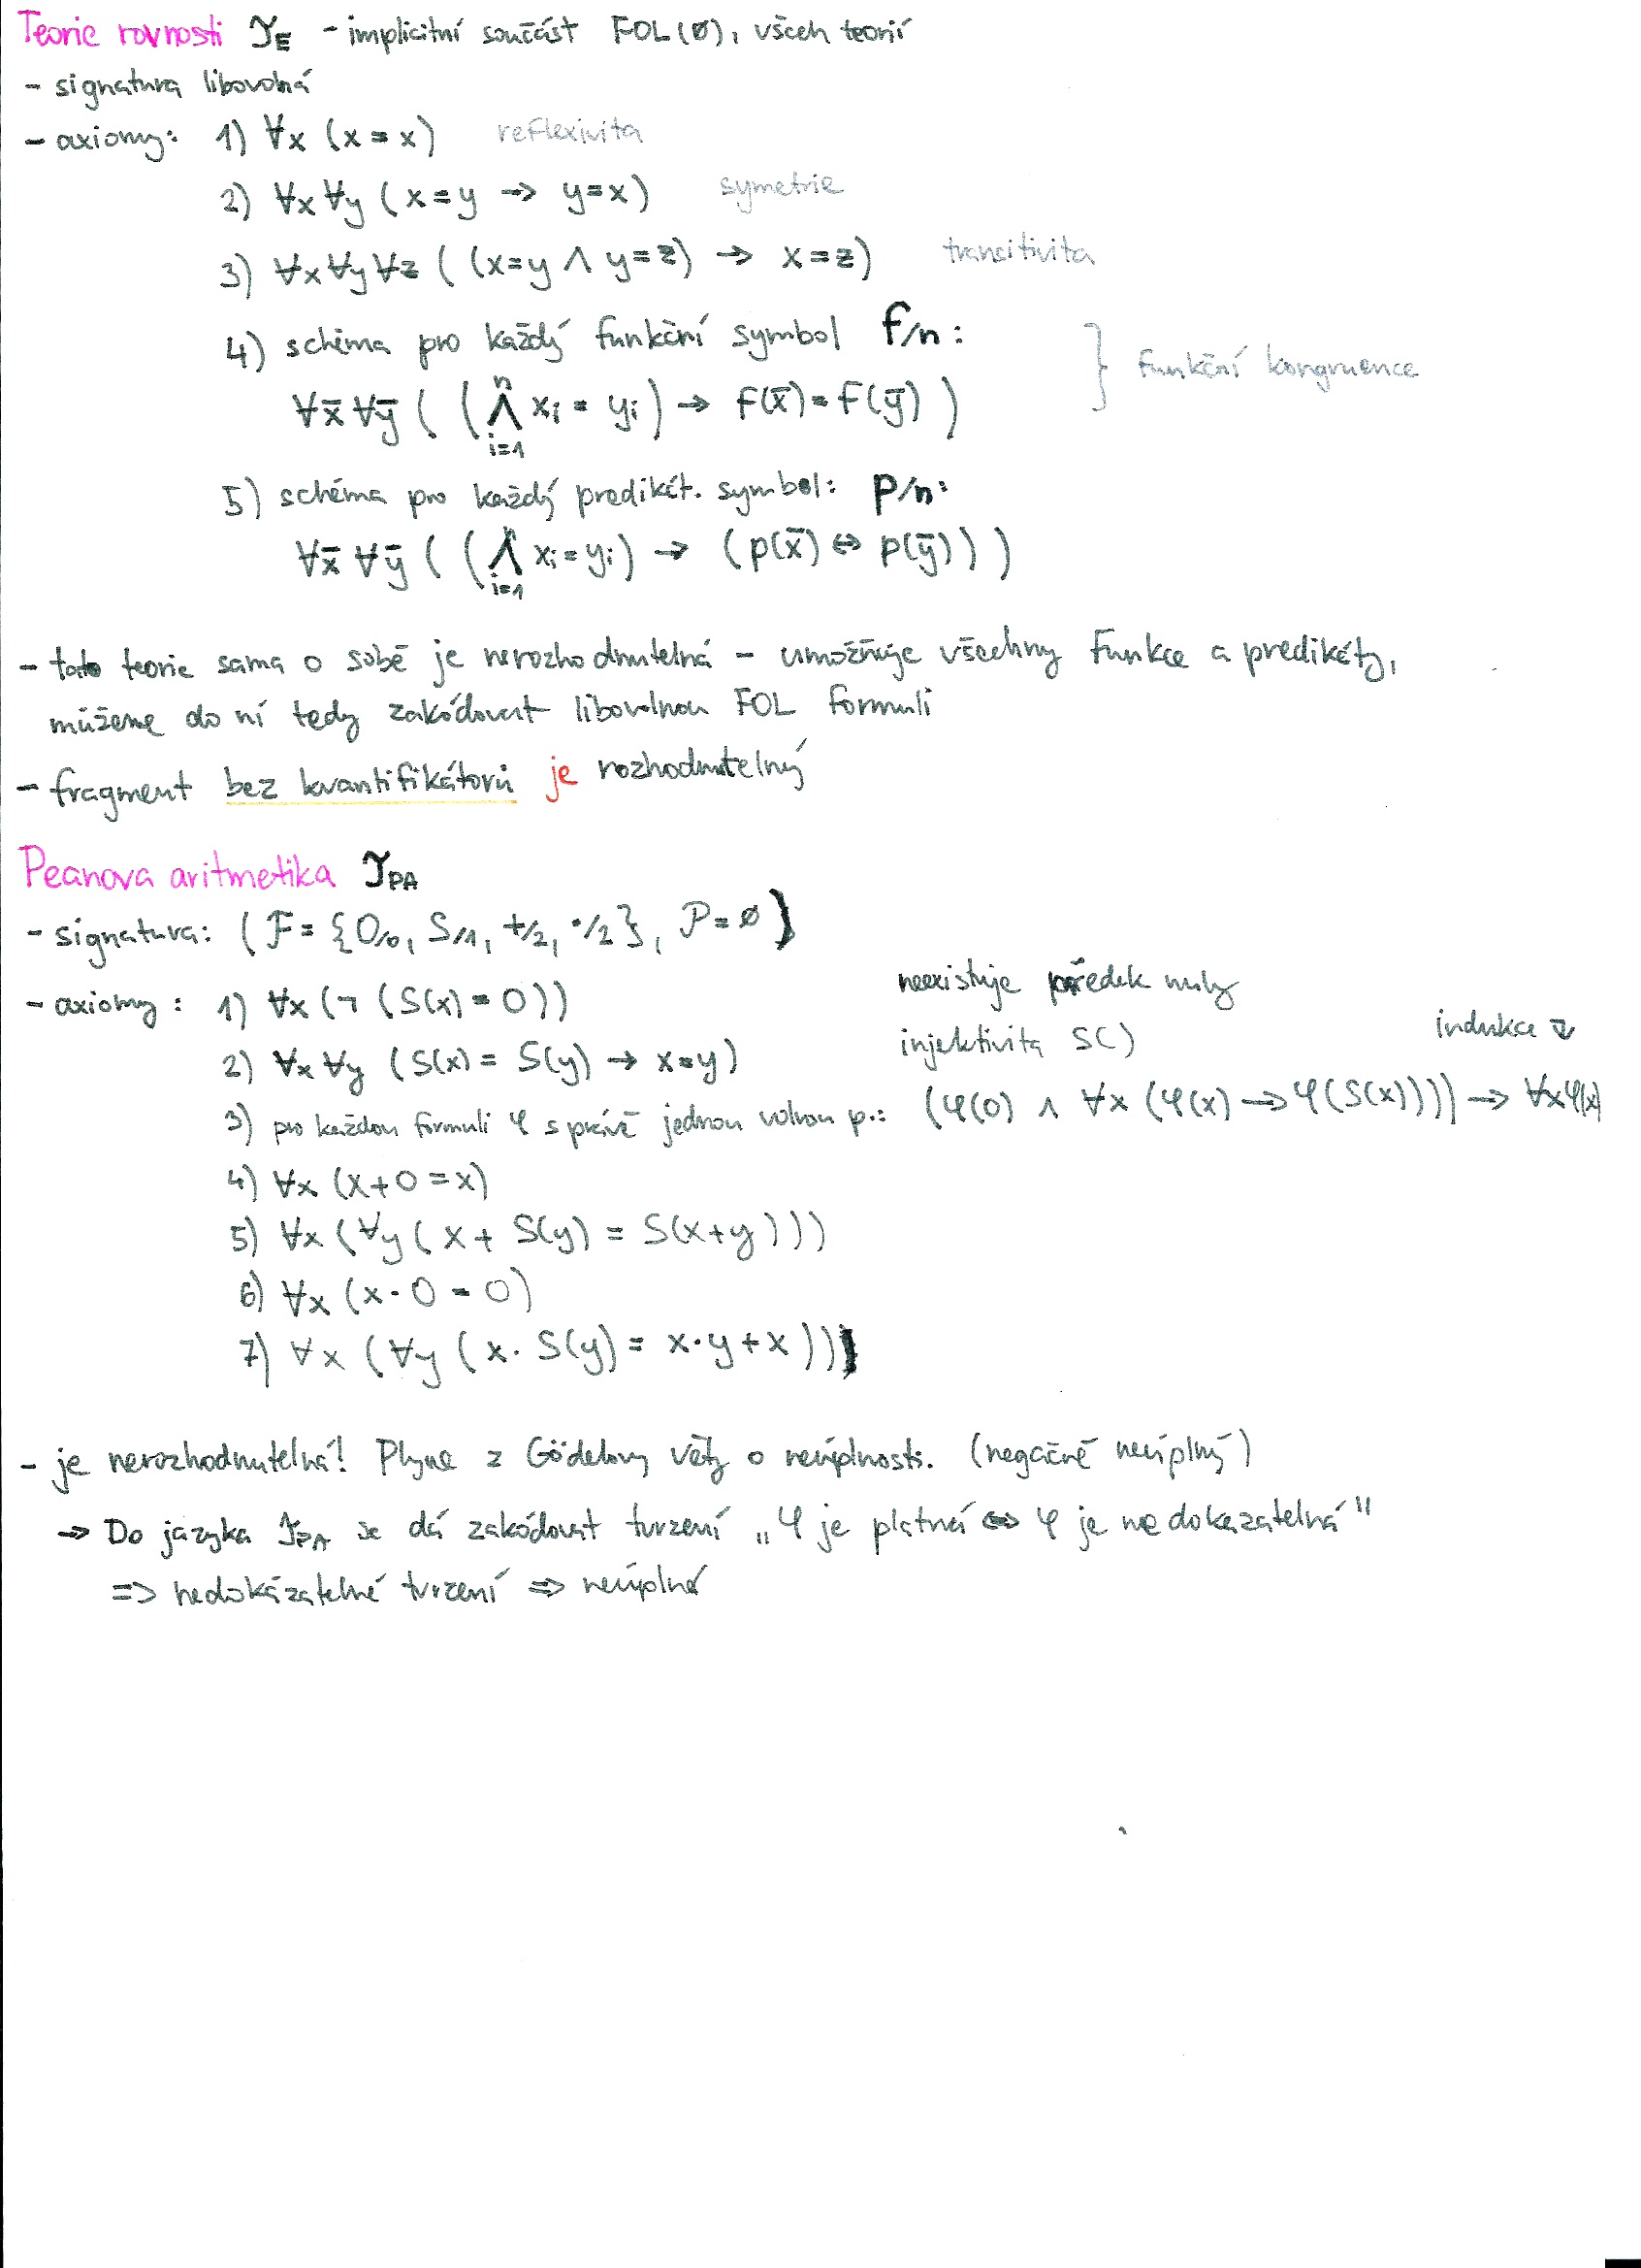 Teorie rovnosti 𝒯E - implicitní součást FOL(∅), všech teorií
- signatura libovolná
- axiomy: 1) ∀x (x = x) reflexivita
2) ∀x ∀y (x = y → y = x) symetrie
3) ∀x ∀y ∀z ((x = y ∧ y = z) → x = z) transitivita
4) schéma pro každý funkční symbol f/n: } funkční kongruence
∀x̄ ∀ȳ ((⋀ⁿᵢ₌₁ xᵢ = yᵢ) → f(x̄) = f(ȳ))
5) schéma pro každý predikát. symbol: p/n:
∀x̄ ∀ȳ ((⋀ⁿᵢ₌₁ xᵢ = yᵢ) → (p(x̄) ↔ p(ȳ)))
- tato teorie sama o sobě je nerozhodnutelná - umožňuje všechny funkce a predikáty,
můžeme do ní tedy zakódovat libovolnou FOL formuli
- fragment bez kvantifikátorů je rozhodnutelný
Peanova aritmetika 𝒯PA
- signatura: (ℱ = {0/0, S/1, +/2, ·/2}, 𝒫 = ∅)
- axiomy: 1) ∀x (¬ (S(x) = 0)) neexistuje předek nuly
2) ∀x ∀y (S(x) = S(y) → x = y) injektivita S() indukce ↓
3) pro každou formuli φ s právě jednou volnou p.: (φ(0) ∧ ∀x (φ(x) → φ(S(x)))) → ∀x φ(x)
4) ∀x (x + 0 = x)
5) ∀x (∀y (x + S(y) = S(x+y)))
6) ∀x (x · 0 = 0)
7) ∀x (∀y (x · S(y) = x · y + x))
- je nerozhodnutelná! Plyne z Gödelovy věty o neúplnosti. (negačně neúplný)
→ Do jazyka 𝒯PA se dá zakódovat tvrzení „φ je platná ⇔ φ je nedokazatelná"
⇒ nedokázatelné tvrzení ⇒ neúplná